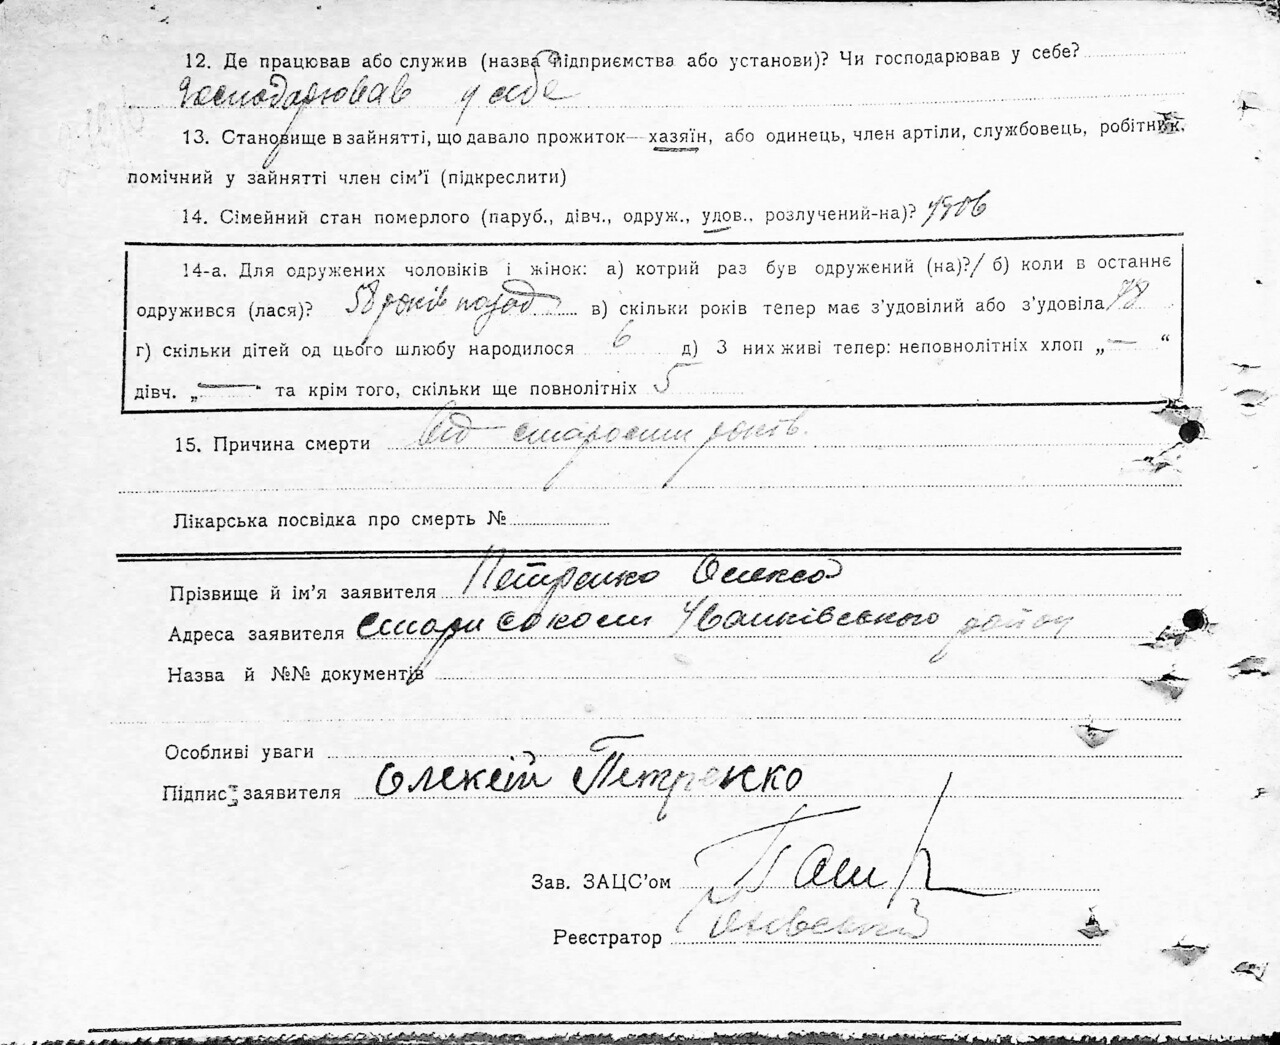 12. Де працював або служив (назва підприємства або установи)? Чи господарював у себе?
Господарював у себе
13. Становище в зайнятті, що давало прожиток — хазяїн, або одинець, член артіли, службовець, робітник,
помічний у зайнятті член сім'ї (підкреслити)
14. Сімейний стан померлого (паруб., дівч., одруж., удов., розлучений-на)?
14-а. Для одружених чоловіків і жінок: а) котрий раз був одружений (на)? / б) коли в останнє
одружився (лася)? 58 років назад в) скільки років тепер має з'удовілий або з'удовіла 78
г) скільки дітей од цього шлюбу народилося 6 д) З них живі тепер: неповнолітніх хлоп „ — “
дівч. „ — “ та крім того, скільки ще повнолітніх 5
15. Причина смерти Од старости років.
Лікарська посвідка про смерть №
Прізвище й ім'я заявителя Петренко Олексій
Адреса заявителя Стари Соколи Іванківського район
Назва й №№ документів
Особливі уваги
Підпис заявителя Олексій Петренко
Зав. ЗАЦС'ом
Реєстратор